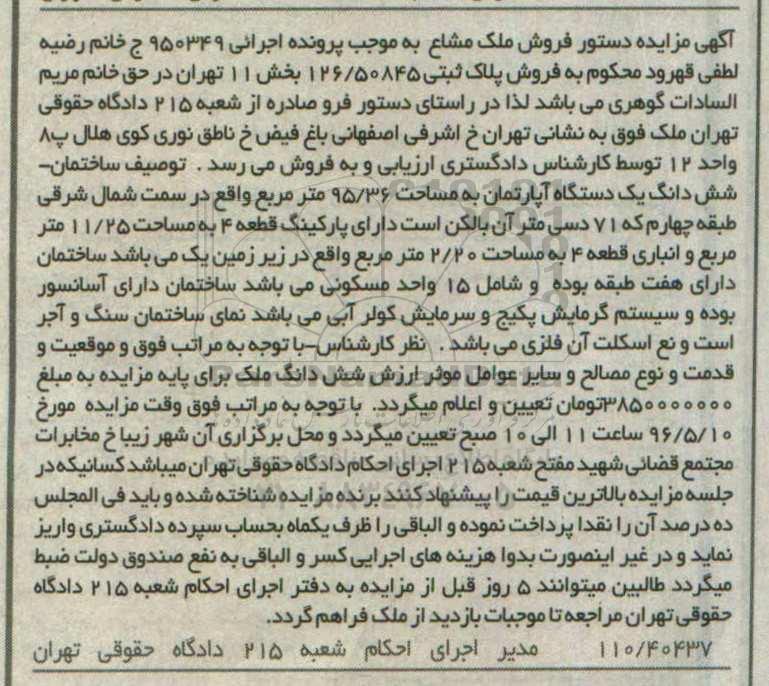 آگهی مزایده دستور فروش ملک مشاع به موجب پرونده اجرائی ۹۵۰۳۴۹ ج خانم رضیه
لطفی قهرود محکوم به فروش پلاک ثبتی ۱۲۶/۵۰۸۴۵ بخش ۱۱ تهران در حق خانم مریم
السادات گوهری می باشد لذا در راستای دستور فرو صادره از شعبه ۲۱۵ دادگاه حقوقی
تهران ملک فوق به نشانی تهران خ اشرفی اصفهانی باغ فیض خ ناطق نوری کوی هلال پ۸
واحد ۱۲ توسط کارشناس دادگستری ارزیابی و به فروش می رسد . توصیف ساختمان-
شش دانگ یک دستگاه آپارتمان به مساحت ۹۵/۳۶ متر مربع واقع در سمت شمال شرقی
طبقه چهارم که ۷۱ دسی متر آن بالکن است دارای پارکینگ قطعه ۴ به مساحت ۱۱/۲۵ متر
مربع و انباری قطعه ۴ به مساحت ۲/۲۰ متر مربع واقع در زیر زمین یک می باشد ساختمان
دارای هفت طبقه بوده و شامل ۱۵ واحد مسکونی می باشد ساختمان دارای آسانسور
بوده و سیستم گرمایش پکیج و سرمایش کولر آبی می باشد نمای ساختمان سنگ و آجر
است و نع اسکلت آن فلزی می باشد . نظر کارشناس-با توجه به مراتب فوق و موقعیت و
قدمت و نوع مصالح و سایر عوامل موثر ارزش شش دانگ ملک برای پایه مزایده به مبلغ
۳۸۵۰۰۰۰۰۰۰تومان تعیین و اعلام میگردد. با توجه به مراتب فوق وقت مزایده مورخ
۹۶/۵/۱۰ ساعت ۱۱ الی ۱۰ صبح تعیین میگردد و محل برگزاری آن شهر زیبا خ مخابرات
مجتمع قضائی شهید مفتح شعبه ۲۱۵ اجرای احکام دادگاه حقوقی تهران میباشد کسانیکه در
جلسه مزایده بالاترین قیمت را پیشنهاد کنند برنده مزایده شناخته شده و باید فی المجلس
ده درصد آن را نقدا پرداخت نموده و الباقی را ظرف یکماه بحساب سپرده دادگستری واریز
نماید و در غیر اینصورت بدوا هزینه های اجرایی کسر و الباقی به نفع صندوق دولت ضبط
میگردد طالبین میتوانند ۵ روز قبل از مزایده به دفتر اجرای احکام شعبه ۲۱۵ دادگاه
حقوقی تهران مراجعه تا موجبات بازدید از ملک فراهم گردد.
۱۱۰/۴۰۴۳۷ مدیر اجرای احکام شعبه ۲۱۵ دادگاه حقوقی تهران